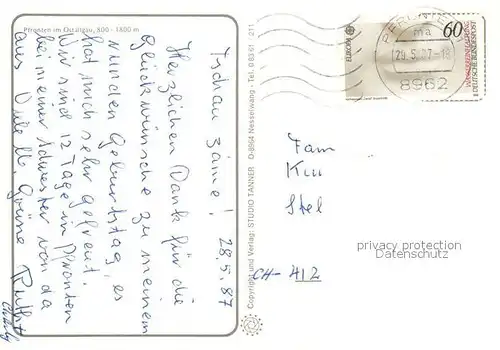 Pfronten im Ostallgäu, 800 - 1800 m
Tschau zäme! 28.5.87
Herzlichen Dank für die
Glückwünsche zu meinem
runden Geburtstag, es
hat mich sehr gefreut.
Wir sind 12 Tage in Pfronten
bei meiner Schwester von da
aus viele lb. Grüsse
Copyright und Verlag: STUDIO TANNER D-8964 Nesselwang - Tel. 0 83 61 / 211
EUROPA
60
DEUTSCHE BUNDESPOST
PFRONTEN
ma
29.5.87-18
8962
Fam
CH- 412
privacy protection
Datenschutz